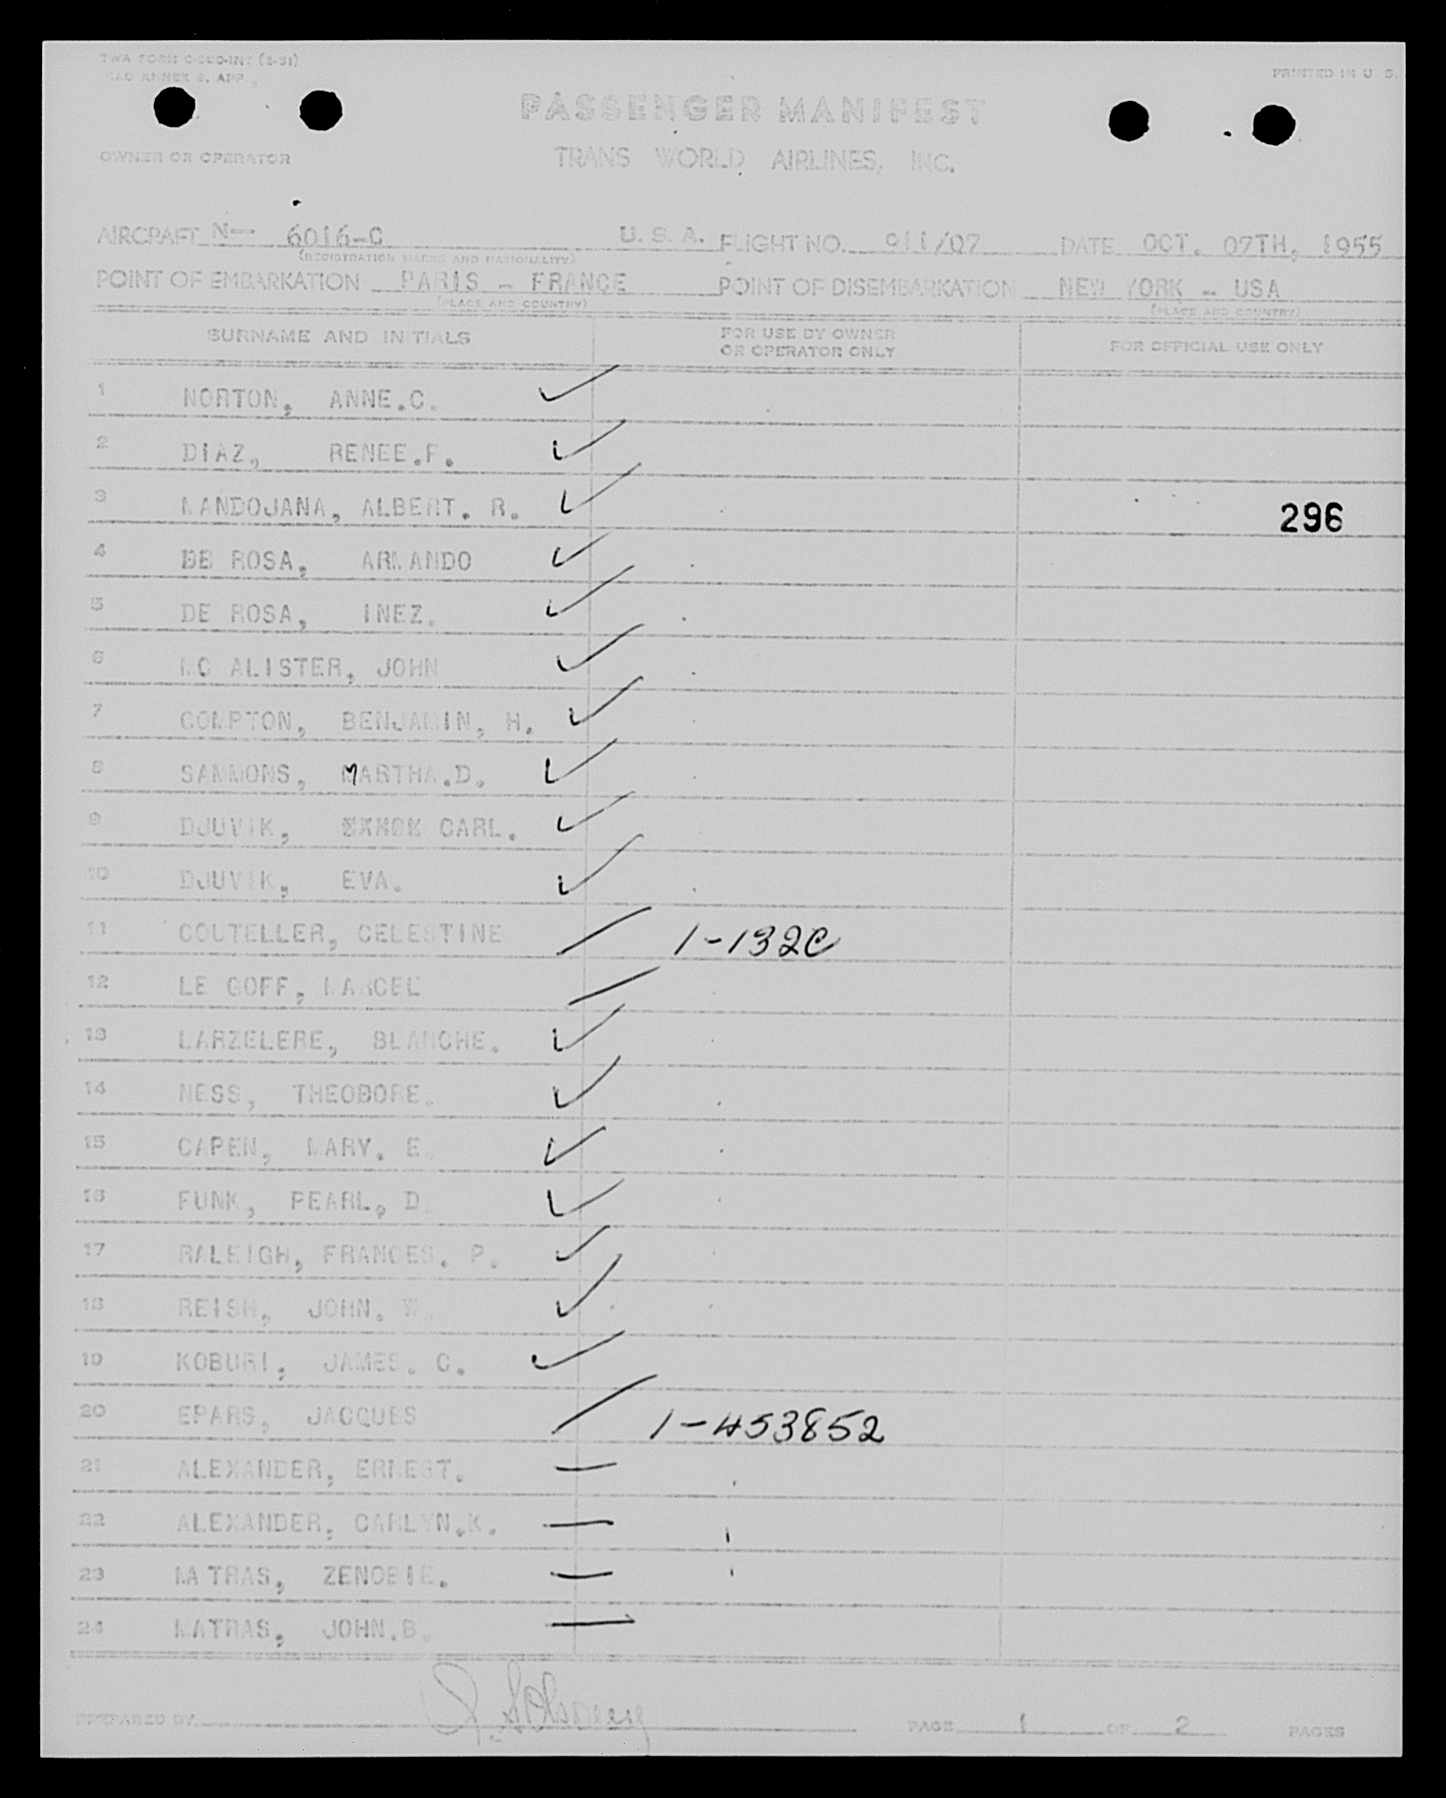 TWA FORM
PRINTED IN U. S.
PASSENGER MANIFEST
OWNER OR OPERATOR
TRANS WORLD AIRLINES, INC.
AIRCRAFT N— 6016-C U. S. A. FLIGHT NO. 911/07 DATE OCT. 07TH, 1955
(REGISTRATION MARKS AND NATIONALITY)
POINT OF EMBARKATION PARIS - FRANCE POINT OF DISEMBARKATION NEW YORK - USA
(PLACE AND COUNTRY) (PLACE AND COUNTRY)
SURNAME AND INITIALS FOR USE BY OWNER OR OPERATOR ONLY FOR OFFICIAL USE ONLY
1 NORTON, ANNE.C.
2 DIAZ, RENEE.F.
3 MANDOJANA, ALBERT. R. 296
4 DE ROSA, ARMANDO
5 DE ROSA, INEZ.
6 MC ALISTER, JOHN
7 COMPTON, BENJAMIN, H.
8 SAMMONS, MARTHA.D.
9 DJUVIK, CARL.
10 DJUVIK, EVA.
11 COUTELLER, CELESTINE 1-132C
12 LE GOFF, MARCEL
13 LARZELERE, BLANCHE.
14 NESS, THEODORE.
15 CAPEN, MARY. E.
16 FUNK, PEARL, D.
17 RALEIGH, FRANCES. P.
18 REISH, JOHN. W.
19 KOBURI, JAMES. C.
20 EPARS, JACQUES 1-453852
21 ALEXANDER, ERNEST.
22 ALEXANDER, CARLYN.K.
23 MATRAS, ZENOBIE.
24 MATRAS, JOHN.B.
PREPARED BY PAGE 1 OF 2 PAGES